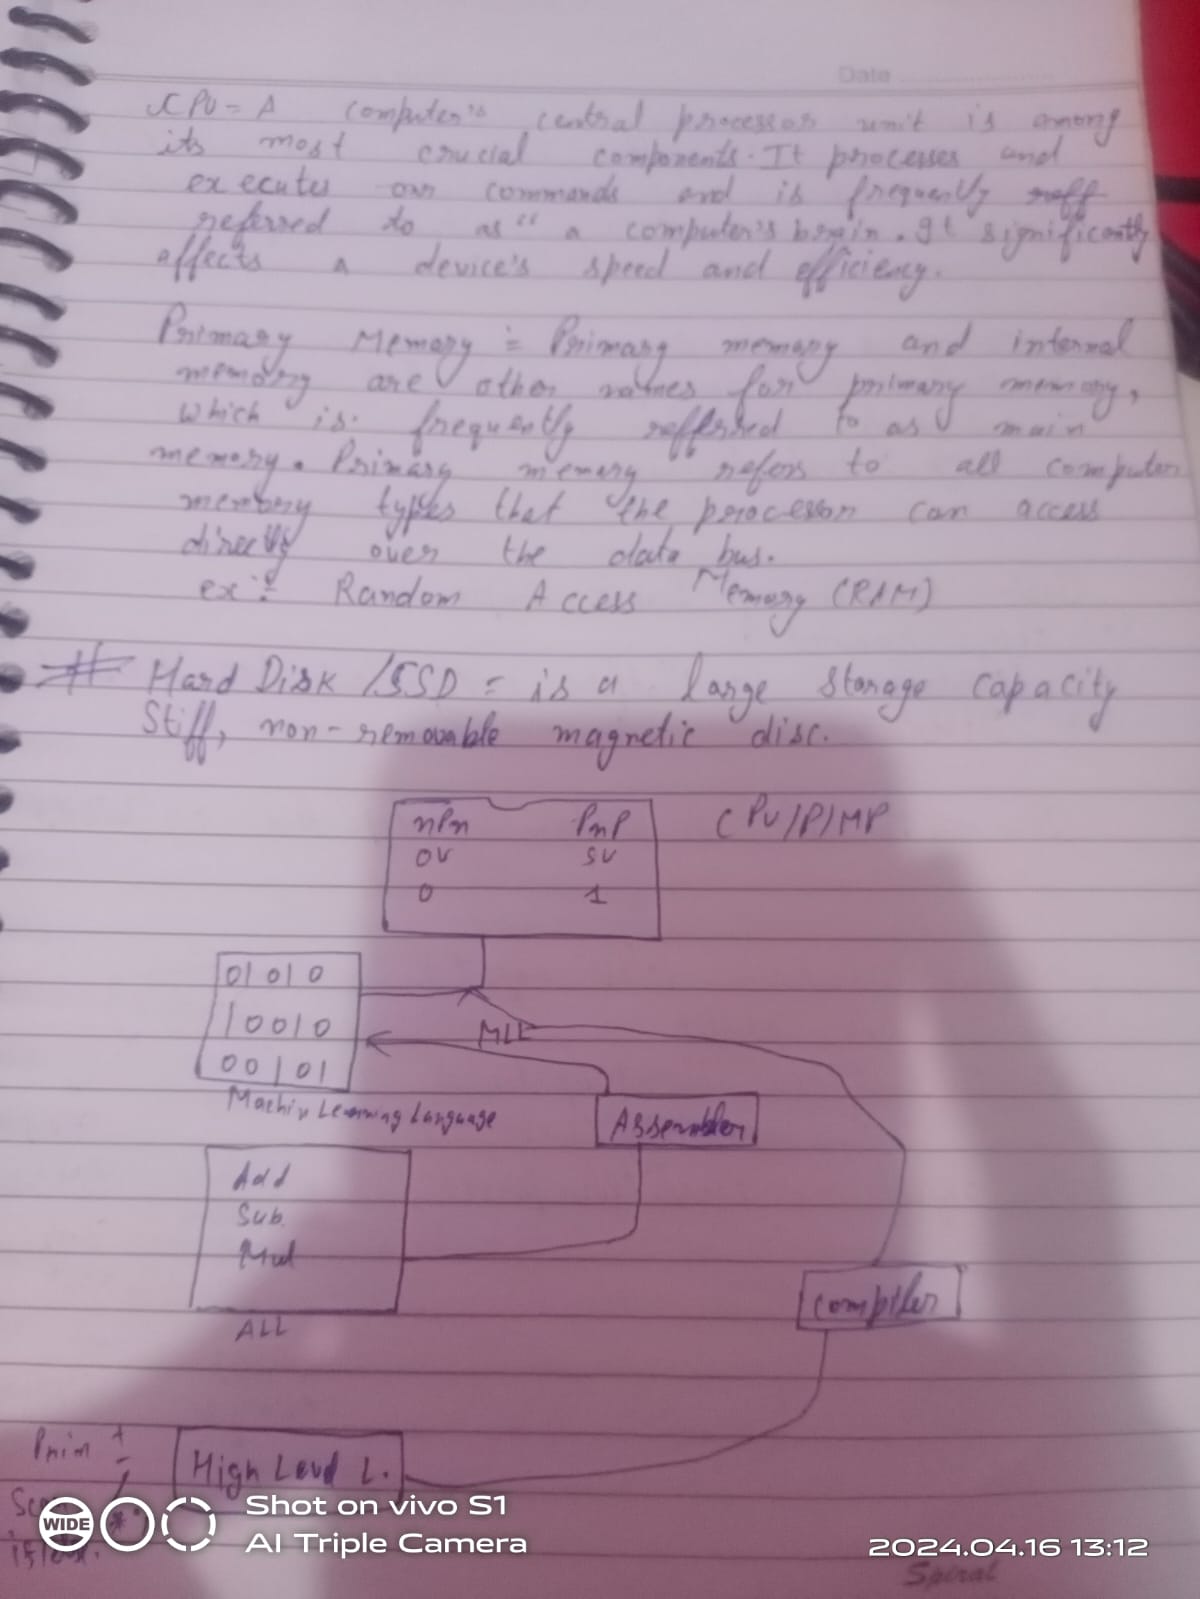 Date
CPU = A computer's central processor unit is among
its most crucial components. It processes and
executes our commands and is frequently reff
referred to as " a computer's brain. It significantly
affects a device's speed and efficiency.
Primary Memory = Primary memory and internal
memory are other names for primary memory,
which is frequently refferred to as main
memory. Primary memory refers to all computer
memory types that the processor can access
directly over the data bus.
ex:- Random Access Memory (RAM)
# Hard Disk /SSD = is a large storage capacity
Stiff, non-removable magnetic disc.
nPn PnP CPU/P/MP
0V 5V
0 1
01010
10010
MLL
00101
Machin Learning Language
Assembler
Add
Sub
Mul
Compiler
ALL
Prim +
High Level L.
Shot on vivo S1
WIDE
AI Triple Camera
2024.04.16 13:12
Spiral